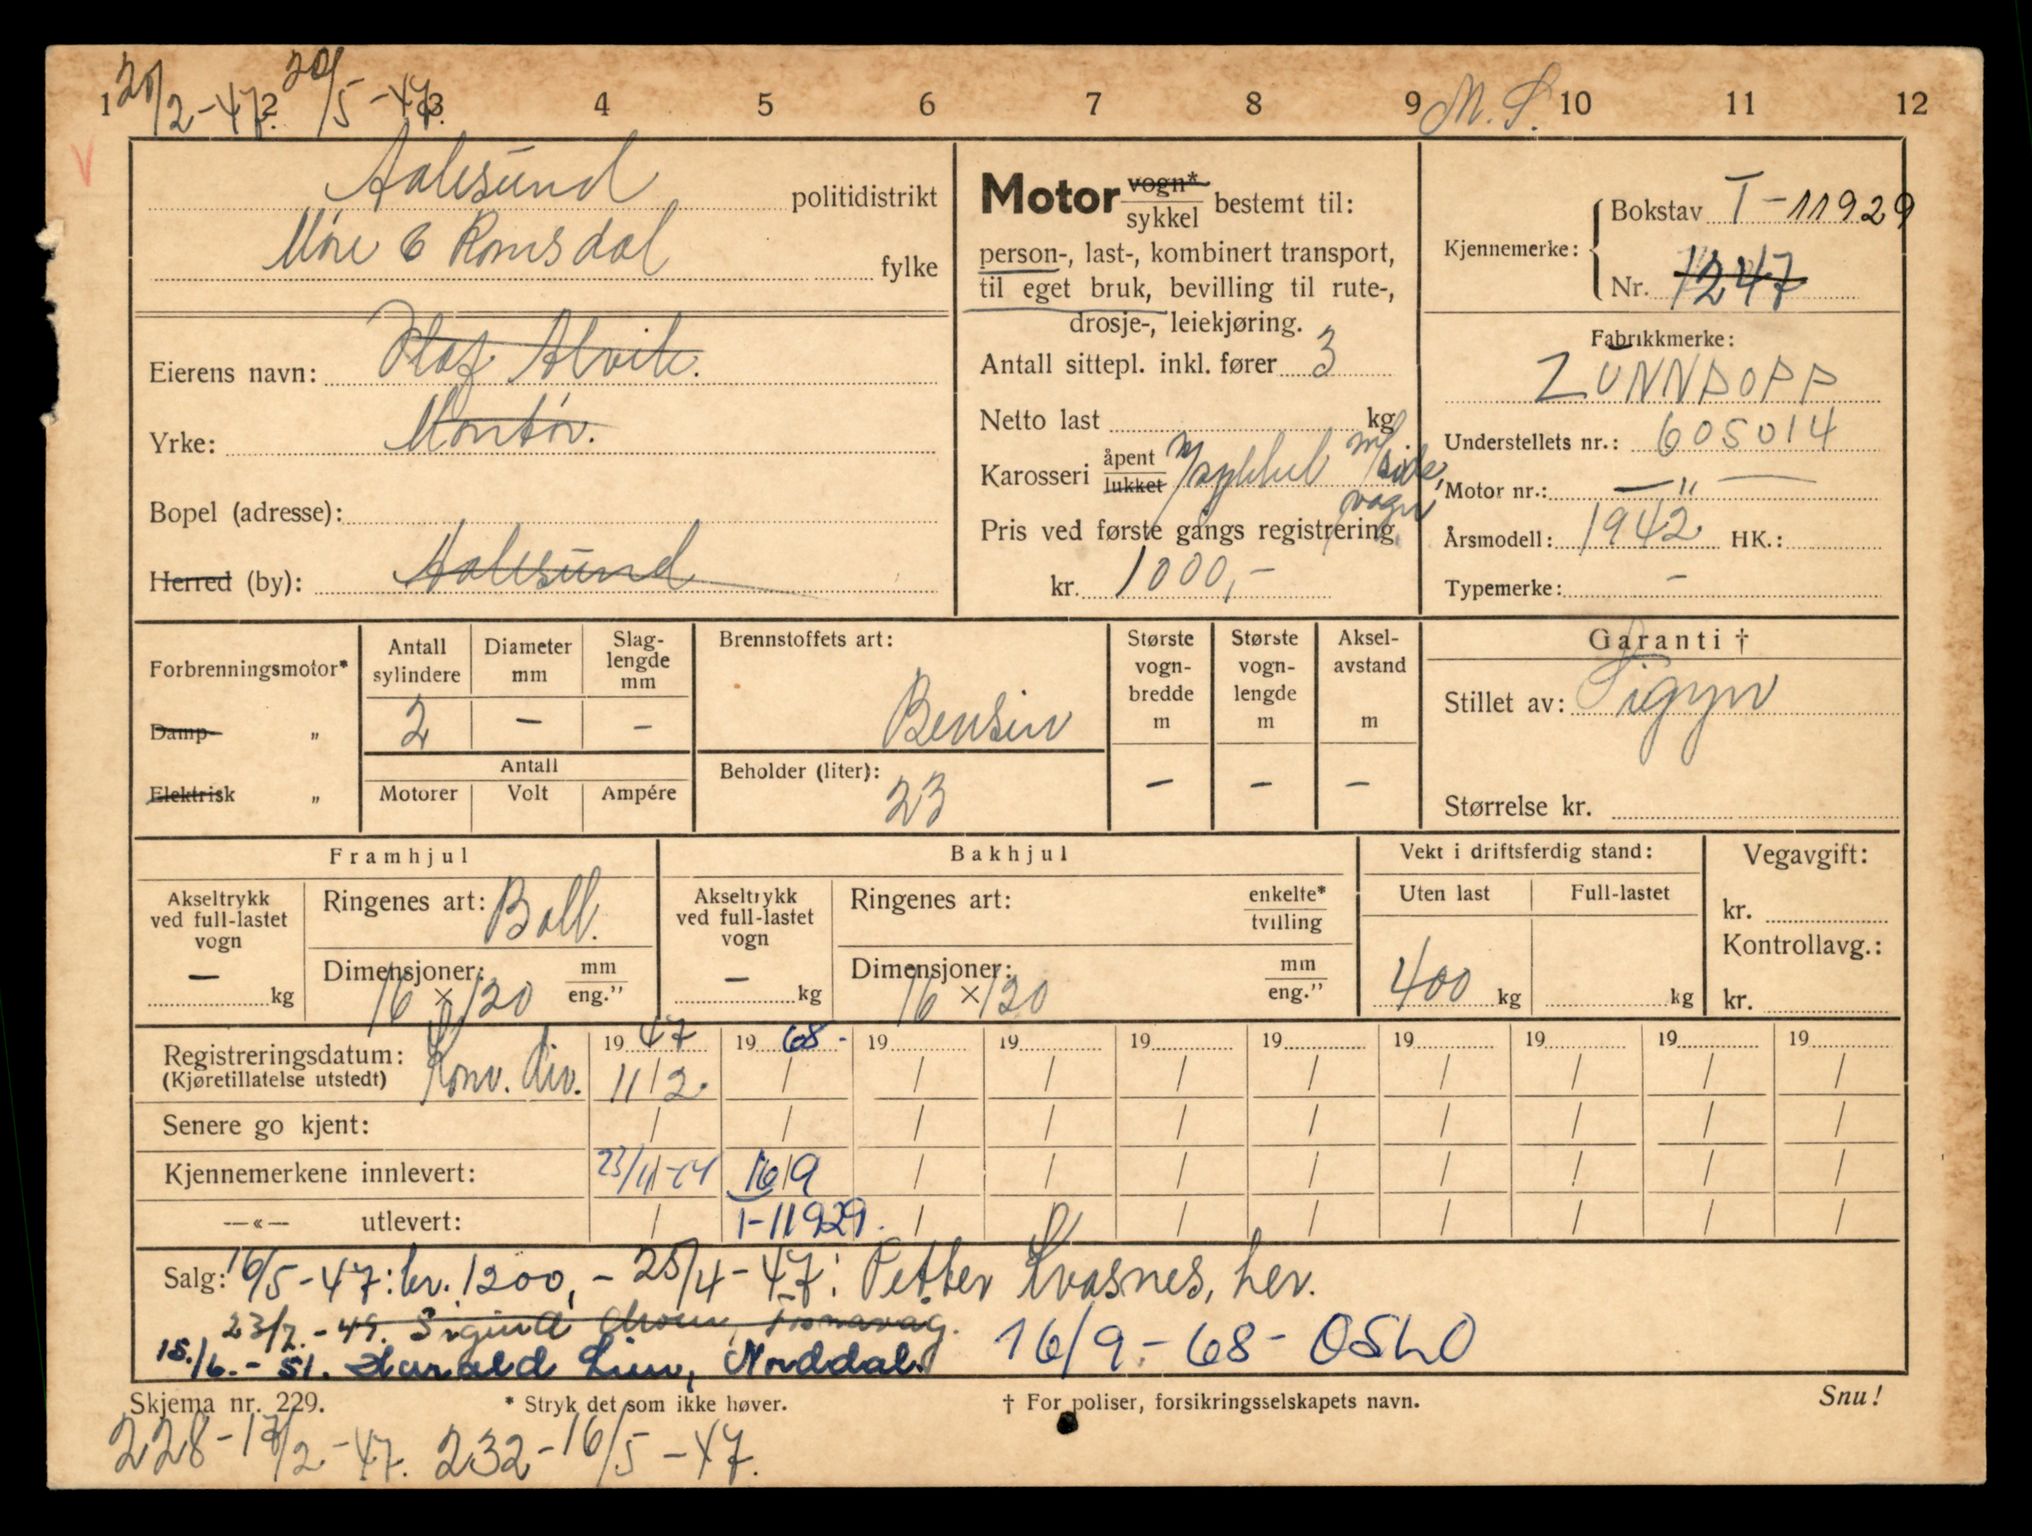 1 2 3 4 5 6 7 8 9 10 11 12
20/2-47. 20/5-47. M. S.
V
Aalesund politidistrikt
Møre & Romsdal fylke
Eierens navn: Olaf Alvik.
Yrke: Montør.
Bopel (adresse):
Herred (by): Aalesund
Motor vogn*
sykkel bestemt til:
person-, last-, kombinert transport,
til eget bruk, bevilling til rute-,
drosje-, leiekjøring.
Antall sittepl. inkl. fører 3
Netto last kg
Karosseri åpent
lukket m/sykkel m/side,
vogn
Pris ved første gangs registrering
kr. 1000,-
Kjennemerke: Bokstav T-11929
Nr. 1247
Fabrikkmerke:
ZÜNNDOPP
Understellets nr.: 605014
Motor nr.: —"—
Årsmodell: 1942 HK.:
Typemerke: -
Forbrenningsmotor*
Damp- "
Elektrisk "
Antall sylindere
Diameter mm
Slag-lengde mm
2 - -
Antall
Motorer Volt Ampére
Brennstoffets art:
Bensin
Beholder (liter):
23
Største vogn-bredde m
Største vogn-lengde m
Aksel-avstand m
- - -
Garanti †
Stillet av: Sigyn
Størrelse kr.
Framhjul
Akseltrykk ved full-lastet vogn
- kg
Ringenes art: Ball.
Dimensjoner: mm
16 × 120 eng."
Bakhjul
Akseltrykk ved full-lastet vogn
- kg
Ringenes art: enkelte*
tvilling
Dimensjoner: mm
16 × 120 eng."
Vekt i driftsferdig stand:
Uten last Full-lastet
400 kg kg
Vegavgift:
kr.
Kontrollavg.:
kr.
1947 1968- 19 19 19 19 19 19 19 19
Registreringsdatum:
(Kjøretillatelse utstedt) 11/2. / / / / / / / / /
Senere go kjent: / / / / / / / / / /
Kjennemerkene innlevert: 16/9 / / / / / / / /
—«— utlevert: / T-11929. / / / / / / / /
Salg: 16/5-47: kr. 1200,- 25/4-47: Petter Kvasnes, her.
23/7.-49. Sigurd
15./6.-51. Harald Lien, Norddal. 16/9.-68- OSLO
Skjema nr. 229. * Stryk det som ikke høver. † For poliser, forsikringsselskapets navn. Snu!
228-13/2-47. 232-16/5-47.